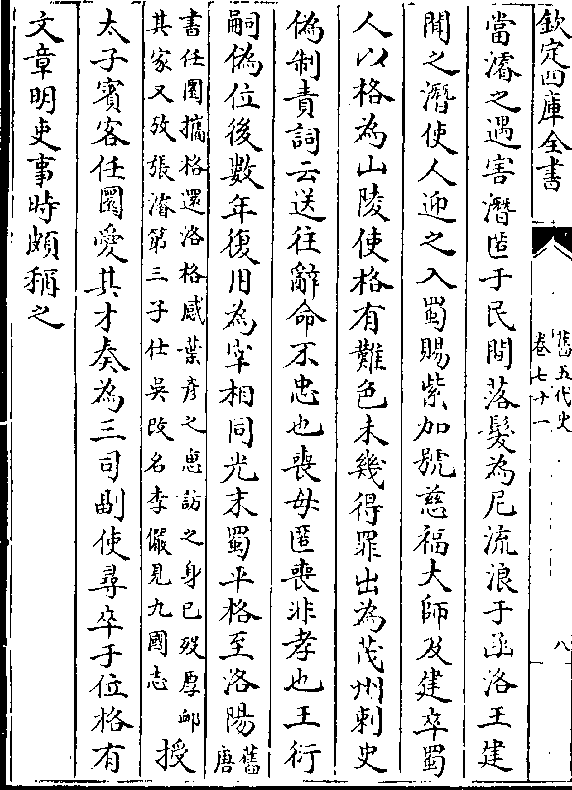 欽定四庫全書
舊五代史
卷七十一
八
當濬之遇害潛匿于民間落髮為尼流浪于函洛王建
聞之潛使人迎之入蜀賜紫加號慈福大師及建卒蜀
人以格為山陵使格有難色未幾得罪出為茂州刺史
偽制責詞云送往辭命不忠也喪母匿喪非孝也王衍
嗣偽位後數年復用為宰相同光末蜀平格至洛陽舊唐
書任圜攜格還洛格感葉彦之惠訪之身已歿厚䘏
其家又攷張濬第三子仕吳改名李儼見九國志
授
太子賓客任圜愛其才奏為三司副使尋卒于位格有
文章明吏事時頗稱之